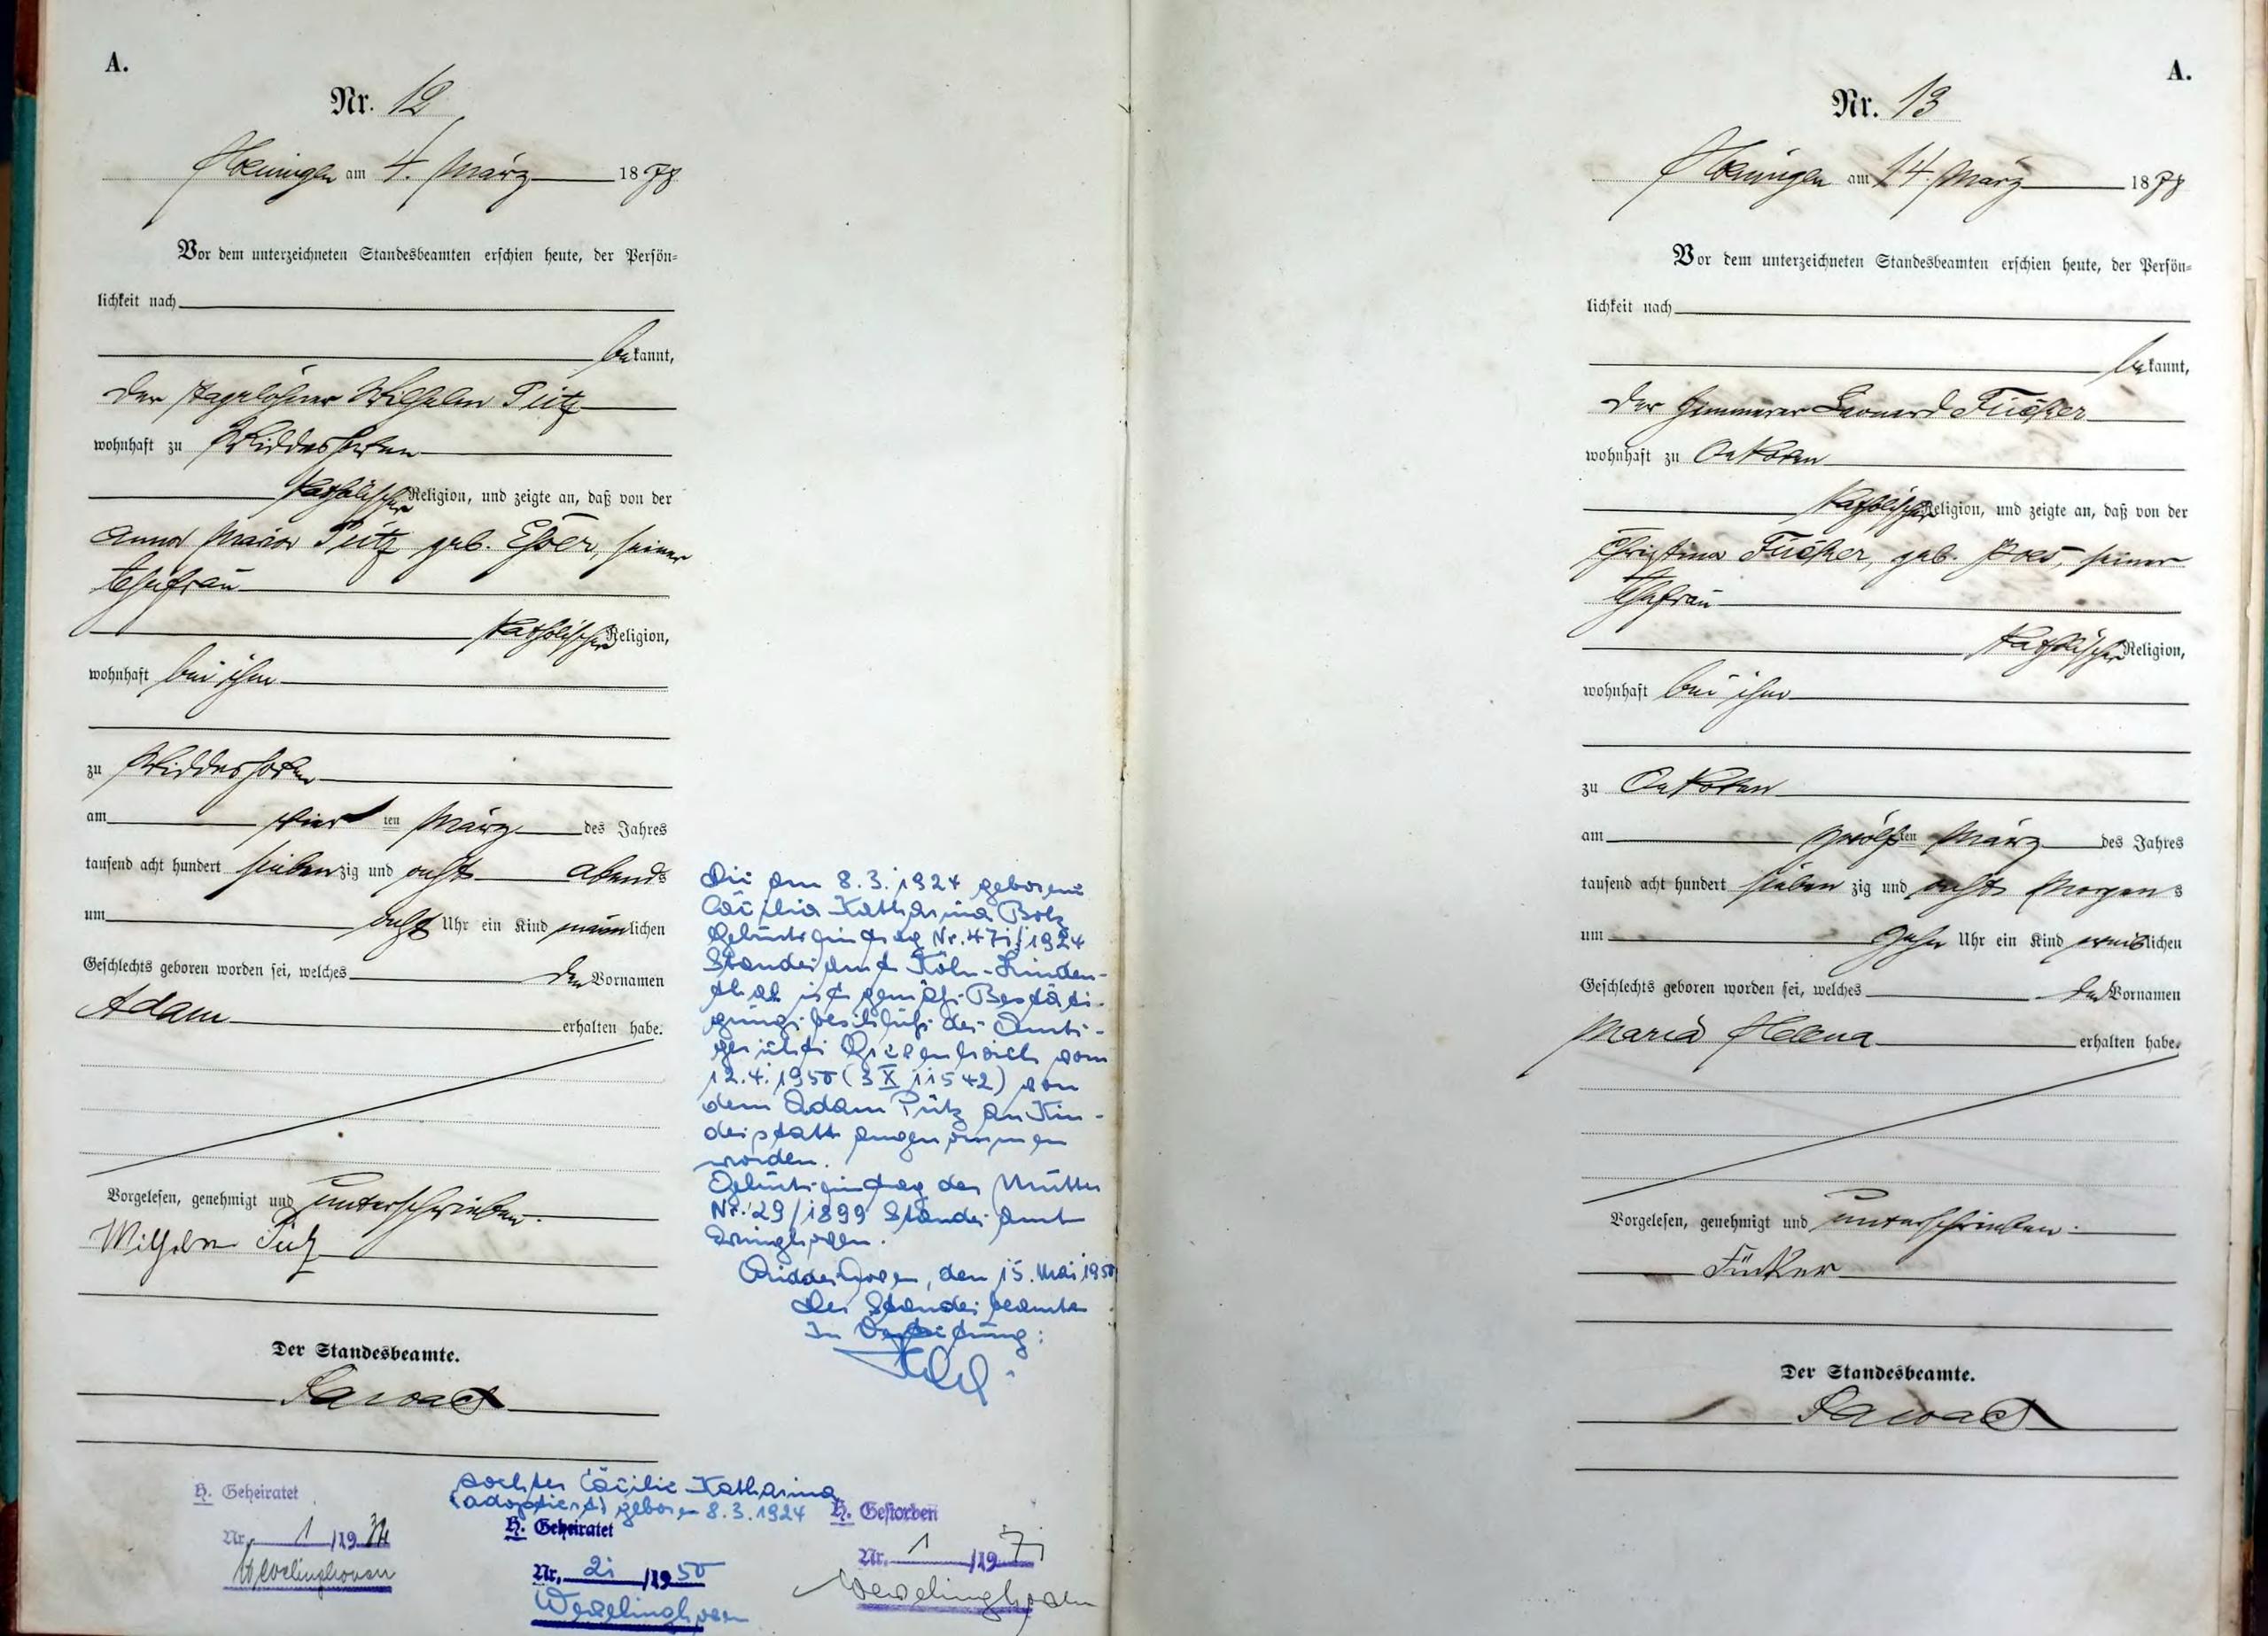 A.
Nr. 12
Hoeningen am 4. März 1878
Vor dem unterzeichneten Standesbeamten erschien heute, der Persön-
lichkeit nach
bekannt,
der Tagelöhner Wilhelm Pütz
wohnhaft zu Widdeshoven
katholischer Religion, und zeigte an, daß von der
Anna Maria Pütz geb. Esser, seiner
Ehefrau
katholischer Religion,
wohnhaft bei ihm
zu Widdeshoven
am vierten März des Jahres
tausend acht hundert siebenzig und acht abends
um acht Uhr ein Kind männlichen
Geschlechts geboren worden sei, welches den Vornamen
Adam erhalten habe.
Vorgelesen, genehmigt und unterschrieben.
Wilhelm Pütz
Der Standesbeamte.
Die am 8.3.1924 geborene
Cäcilia Katharina
Geburtseintrag Nr. 471/1924
Standesamt Köln-Linden-
thal ist gemäß Bestäti-
gungsbeschluß des Amts-
gerichts Grevenbroich vom
12.4.1950 (3 X 11542) von
dem Adam Pütz an Kin-
desstatt angenommen
worden.
Geburtseintrag der Mutter
Nr. 29/1899 Standesamt
Evinghoven.
Widdeshoven, den 15. Mai 1950
Der Standesbeamte
In Vertretung:
H. Geheiratet
Nr. 1 /19
Wevelinghoven
Tochter Cäcilie Katharina
(adoptiert) geboren 8.3.1924
H. Geheiratet
Nr. 21 /1950
Wevelinghoven
H. Gestorben
Nr. 1 /19
Wevelinghoven
A.
Nr. 13
Hoeningen am 14. März 1878
Vor dem unterzeichneten Standesbeamten erschien heute, der Persön-
lichkeit nach
bekannt,
der Leonard Fücker
wohnhaft zu Oekoven
katholischer Religion, und zeigte an, daß von der
Christina Fücker, geb. seiner
Ehefrau
katholischer Religion,
wohnhaft bei ihm
zu Oekoven
am zwölften März des Jahres
tausend acht hundert siebenzig und acht Morgens
um zehn Uhr ein Kind weiblichen
Geschlechts geboren worden sei, welches den Vornamen
Maria Helena erhalten habe.
Vorgelesen, genehmigt und unterschrieben.
Der Standesbeamte.